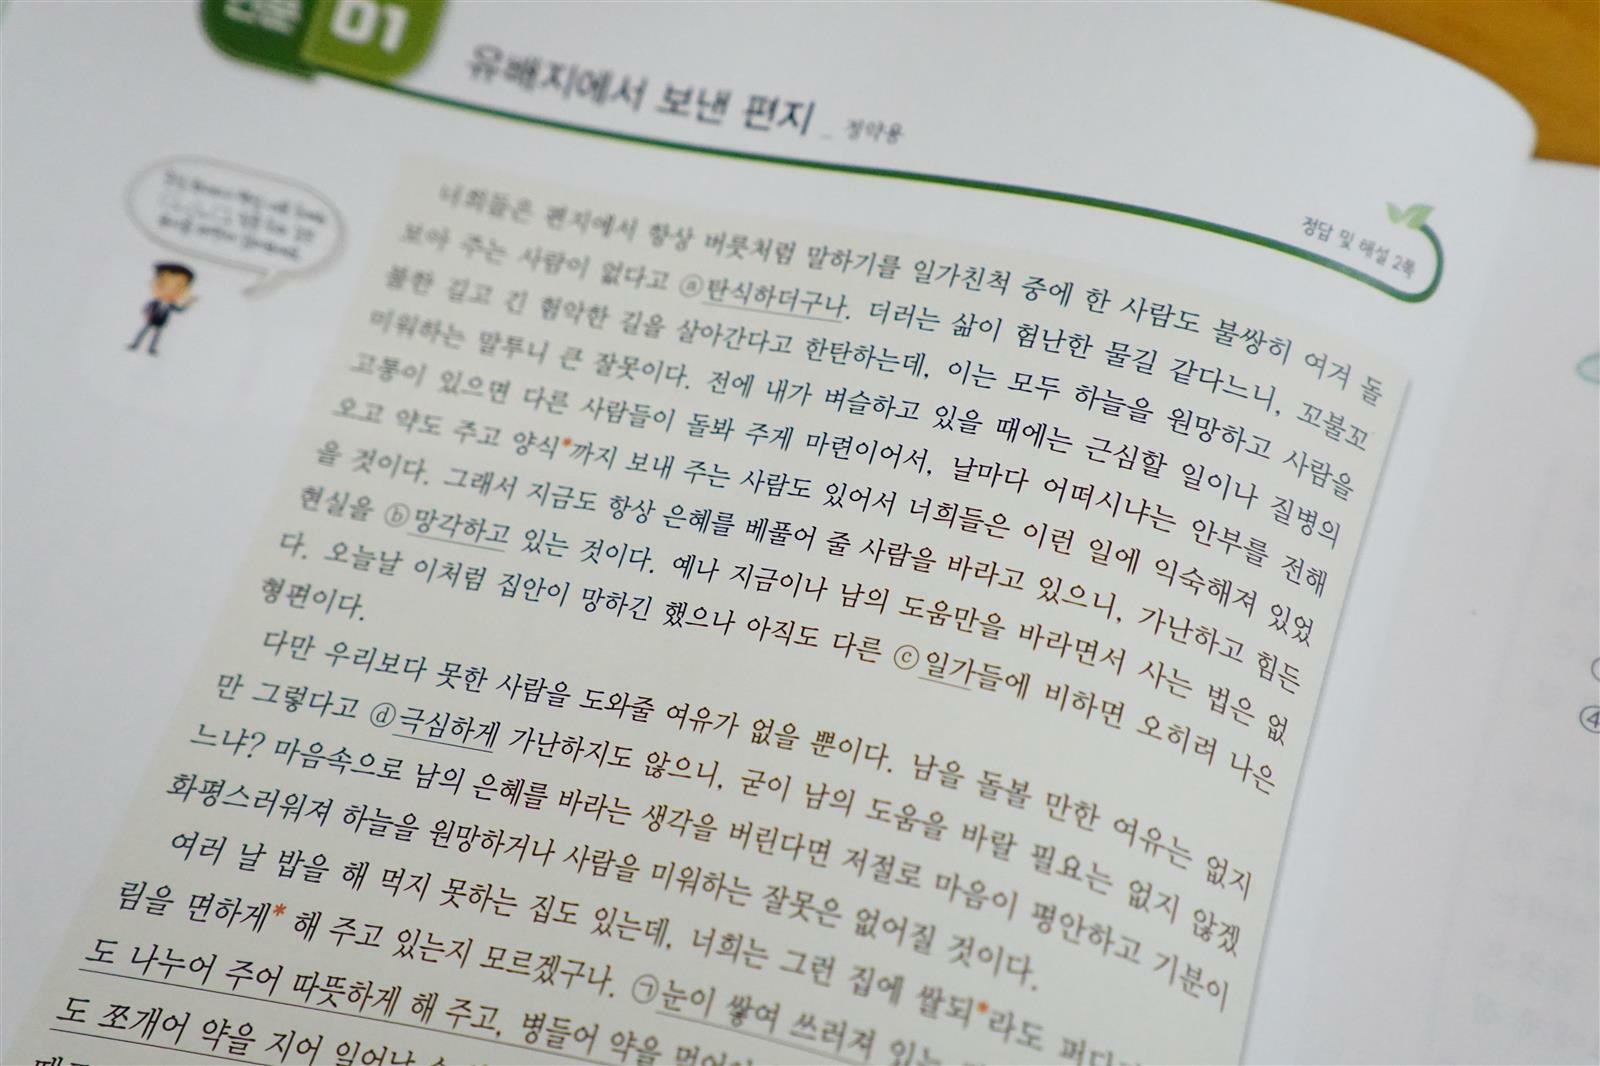 01
유배지에서 보낸 편지 _ 정약용
정답 및 해설 2쪽
너희들은 편지에서 항상 버릇처럼 말하기를 일가친척 중에 한 사람도 불쌍히 여겨 돌
보아 주는 사람이 없다고 ⓐ탄식하더구나. 더러는 삶이 험난한 물길 같다느니, 꼬불꼬
불한 길고 긴 험악한 길을 살아간다고 한탄하는데, 이는 모두 하늘을 원망하고 사람을
미워하는 말투니 큰 잘못이다. 전에 내가 벼슬하고 있을 때에는 근심할 일이나 질병의
고통이 있으면 다른 사람들이 돌봐 주게 마련이어서, 날마다 어떠시냐는 안부를 전해
오고 약도 주고 양식*까지 보내 주는 사람도 있어서 너희들은 이런 일에 익숙해져 있었
을 것이다. 그래서 지금도 항상 은혜를 베풀어 줄 사람을 바라고 있으니, 가난하고 힘든
현실을 ⓑ망각하고 있는 것이다. 예나 지금이나 남의 도움만을 바라면서 사는 법은 없
다. 오늘날 이처럼 집안이 망하긴 했으나 아직도 다른 ⓒ일가들에 비하면 오히려 나은
형편이다.
다만 우리보다 못한 사람을 도와줄 여유가 없을 뿐이다. 남을 돌볼 만한 여유는 없지
만 그렇다고 ⓓ극심하게 가난하지도 않으니, 굳이 남의 도움을 바랄 필요는 없지 않겠
느냐? 마음속으로 남의 은혜를 바라는 생각을 버린다면 저절로 마음이 평안하고 기분이
화평스러워져 하늘을 원망하거나 사람을 미워하는 잘못은 없어질 것이다.
여러 날 밥을 해 먹지 못하는 집도 있는데, 너희는 그런 집에 쌀되*라도 퍼다
림을 면하게* 해 주고 있는지 모르겠구나. ㉠눈이 쌓여 쓰러져 있는
도 나누어 주어 따뜻하게 해 주고, 병들어 약을 먹어야
도 쪼개어 약을 지어 일어날 수
④